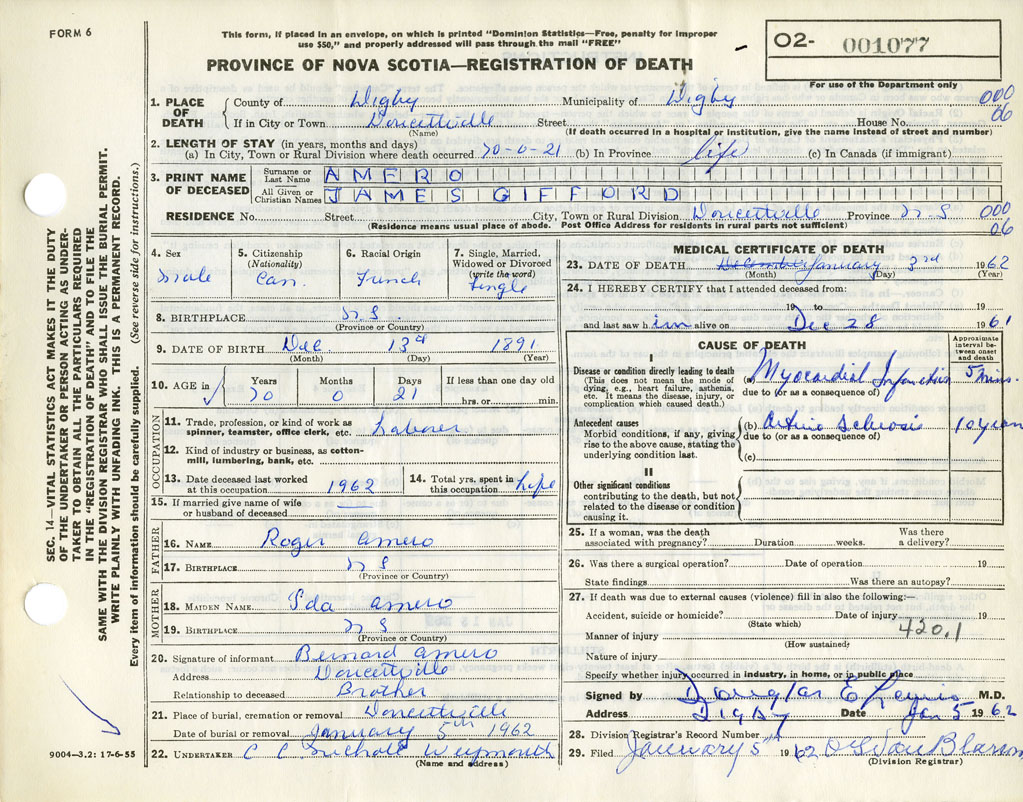 FORM 6
This form, if placed in an envelope, on which is printed "Dominion Statistics—Free, penalty for improper
use $50," and properly addressed will pass through the mail "FREE"
PROVINCE OF NOVA SCOTIA—REGISTRATION OF DEATH
02- 001077
For use of the Department only
1. PLACE OF DEATH County of Digby Municipality of Digby 000
If in City or Town Doucettville Street House No. 06
(Name) (If death occurred in a hospital or institution, give the name instead of street and number)
2. LENGTH OF STAY (in years, months and days)
(a) In City, Town or Rural Division where death occurred 70-0-21 (b) In Province life (c) In Canada (if immigrant)
3. PRINT NAME OF DECEASED
Surname or Last Name AMERO
All Given or Christian Names JAMES GIFFORD
RESIDENCE No. Street City, Town or Rural Division Doucettville Province N.S 000
(Residence means usual place of abode. Post Office Address for residents in rural parts not sufficient) 06
4. Sex Male
5. Citizenship (Nationality) Can.
6. Racial Origin French
7. Single, Married, Widowed or Divorced (write the word) Single
8. BIRTHPLACE N.S.
(Province or Country)
9. DATE OF BIRTH Dec 13 1891
(Month) (Day) (Year)
10. AGE in Years Months Days If less than one day old
70 0 21 hrs. or min.
OCCUPATION
11. Trade, profession, or kind of work as
spinner, teamster, office clerk, etc. Laborer
12. Kind of industry or business, as cotton-
mill, lumbering, bank, etc.
13. Date deceased last worked at this occupation 1962
14. Total yrs. spent in this occupation Life
15. If married give name of wife
or husband of deceased —
FATHER
16. NAME Roger Amero
17. BIRTHPLACE N S
(Province or Country)
MOTHER
18. MAIDEN NAME Ida Amero
19. BIRTHPLACE N S
(Province or Country)
20. Signature of informant Bernard Amero
Address Doucettville
Relationship to deceased Brother
21. Place of burial, cremation or removal Doucettville
Date of burial or removal January 5th 1962
22. UNDERTAKER C C Nichols Weymouth
(Name and address)
MEDICAL CERTIFICATE OF DEATH
23. DATE OF DEATH December January 3rd 1962
(Month) (Day) (Year)
24. I HEREBY CERTIFY that I attended deceased from:
19 to 19
and last saw him alive on Dec 28 1961
CAUSE OF DEATH
Approximate interval between onset and death
I
Disease or condition directly leading to death
(This does not mean the mode of
dying, e.g., heart failure, asthenia,
etc. It means the disease, injury, or
complication which caused death.)
(a) Myocardial Infarction 5 mins.
due to (or as a consequence of)
Antecedent causes
Morbid conditions, if any, giving
rise to the above cause, stating the
underlying condition last.
(b) Arterio Sclerosis 10 years
due to (or as a consequence of)
(c)
II
Other significant conditions
contributing to the death, but not
related to the disease or condition
causing it.
25. If a woman, was the death Was there
associated with pregnancy? Duration weeks. a delivery?
26. Was there a surgical operation? Date of operation 19
State findings Was there an autopsy?
27. If death was due to external causes (violence) fill in also the following:—
Accident, suicide or homicide? Date of injury 19
(State which) 420.1
Manner of injury
(How sustained)
Nature of injury
Specify whether injury occurred in industry, in home, or in public place
Signed by Douglas E Lewis M.D.
Address Digby Date Jan 5 1962
28. Division Registrar's Record Number
29. Filed January 5 1962
(Division Registrar)
SEC. 14—VITAL STATISTICS ACT MAKES IT THE DUTY
OF THE UNDERTAKER OR PERSON ACTING AS UNDER-
TAKER TO OBTAIN ALL THE PARTICULARS REQUIRED
IN THE "REGISTRATION OF DEATH" AND TO FILE THE
SAME WITH THE DIVISION REGISTRAR WHO SHALL ISSUE THE BURIAL PERMIT.
WRITE PLAINLY WITH UNFADING INK. THIS IS A PERMANENT RECORD.
Every item of information should be carefully supplied. (See reverse side for instructions.)
9004—3.2: 17-6-55